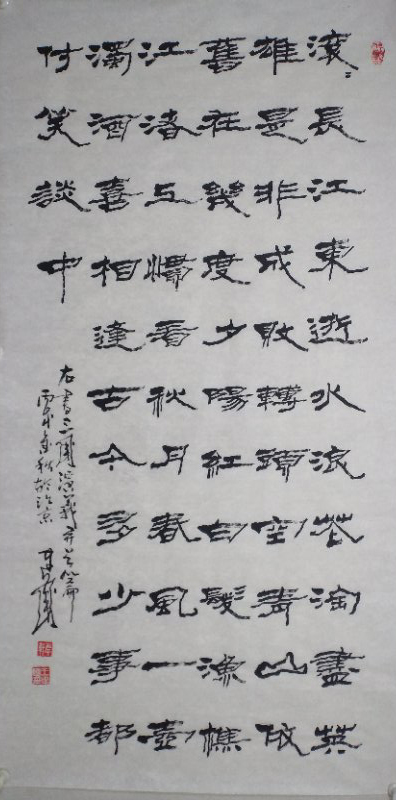 滚〻長江東逝水浪花淘盡英
雄是非成敗轉頭空青山依
舊在幾度夕陽紅白髮漁樵
江渚上慣看秋月春風一壺
濁酒喜相逢古今多少事都
付笑談中
右書三國演義
丙戌金秋於